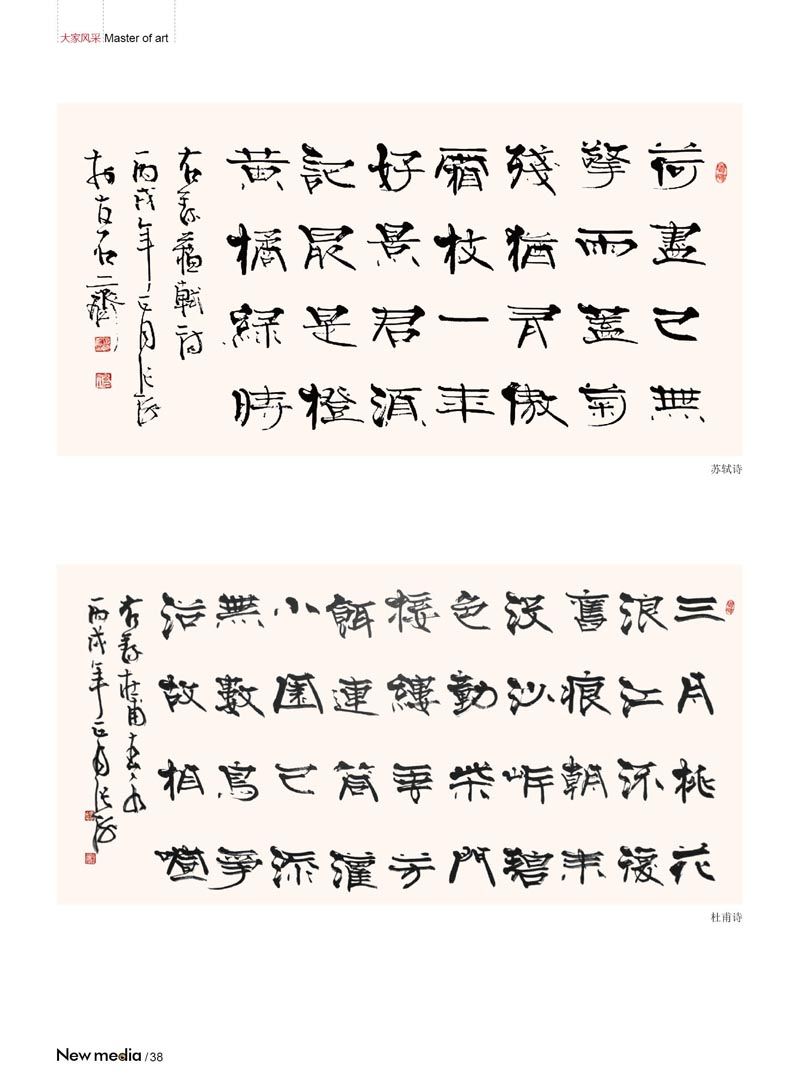 大家风采 Master of art
荷盡已無
擎雨蓋菊
殘猶有傲
霜枝一年
好景君湏
記最是橙
黃橘綠時
右录蘇軾詩
丙戌年正月張
苏轼诗
三月桃花
浪江流復
舊痕朝来
沒沙岸碧
色動柴門
接縷垂芳
餌連筒灌
小園已添
無數鳥爭
浴故相喧
右录杜甫春水
丙戌年正月張
杜甫诗
New media / 38